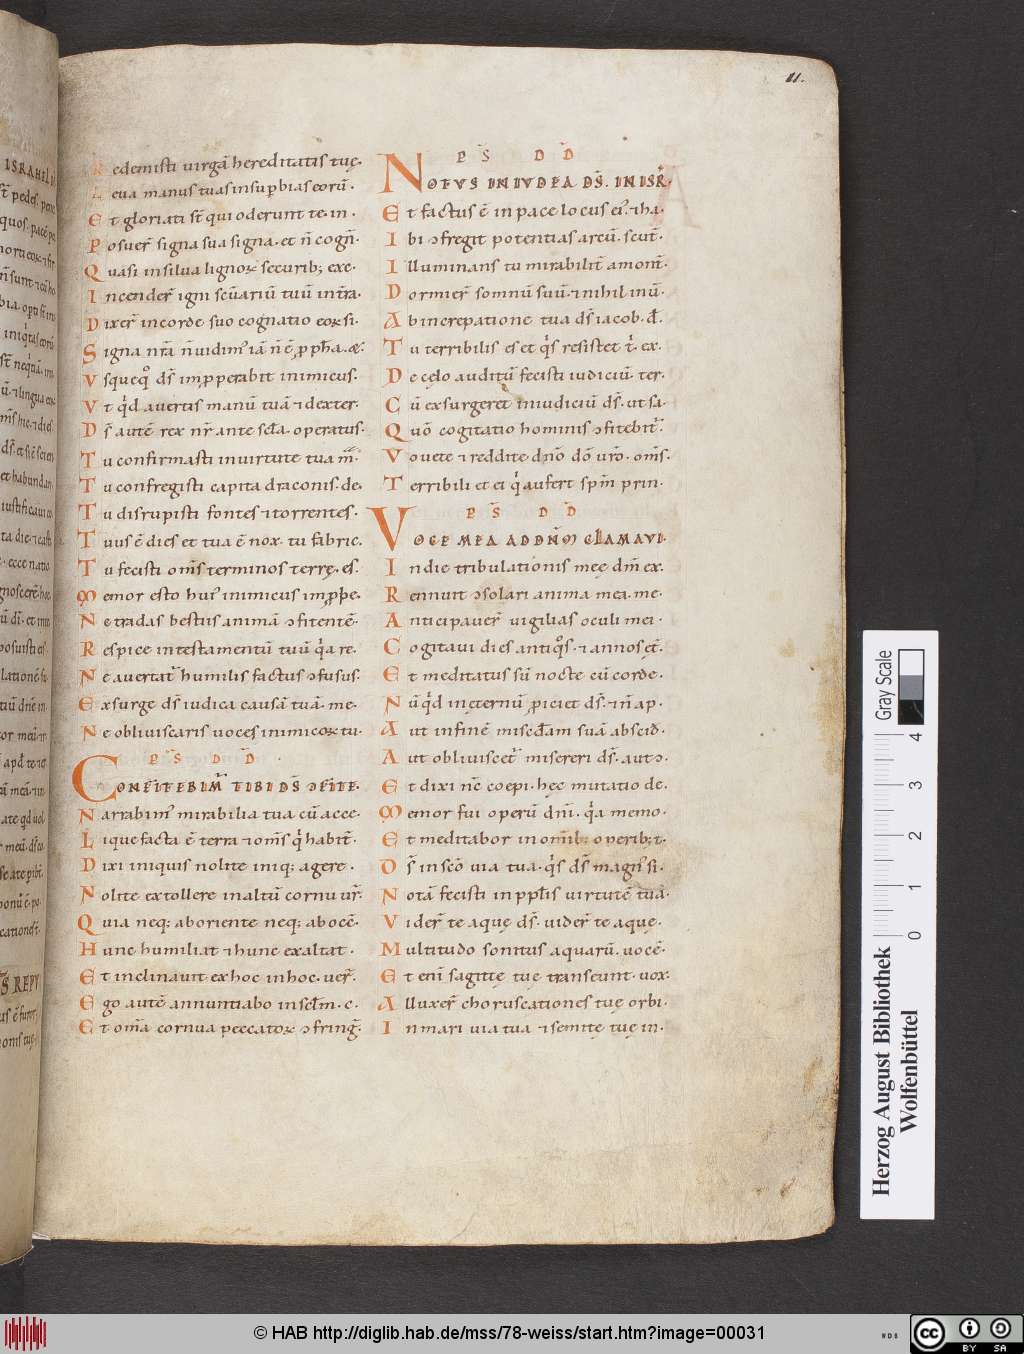 11.
Redemisti uirgā hereditatis tuę.
Leua manus tuas insupbias eorū.
Et gloriati st̄ qui oderunt te. in.
Posuer̄ signa sua signa. et n̄ cogn̄.
Quasi insilua lignoꝝ securib; exe.
Incender̄ igni scūariū tuū int̄ra.
Dixer̄ incorde suo cognatio eoꝝ si.
Signa nr̄a n̄ uidimꝰ iā n̄ ē ꝓpħa. &.
Vsquequo ds̄ imꝓperabit inimicus.
Vt qͥd auertis manū tuā ⁊dexter.
Ds̄ autē rex nr̄ ante sc̄la. operatus.
Tu confirmasti inuirtute tua m̄.
Tu confregisti capita draconis. de.
Tu disrupisti fontes ⁊torrentes.
Tuus ē dies et tua ē nox. tu fabric.
Tu fecisti om̄s terminos terrę. es.
Memor esto huiꝰ inimicus imꝓpe.
Ne tradas bestiis animā ↄfitentē.
Respice intestamentū tuū qͥa re.
Ne auertat᷑ humilis factus ↄfusus.
Exsurge ds̄ iudica causā tuā. me.
Ne obliuiscaris uoces inimicoꝝ tu.
PS̄ DD̄
CONFITEBIM᷑ TIBI DS̄ ↃFITE.
Narrabimꝰ mirabilia tua cū acce.
Liquefacta ē terra ⁊om̄s qͥ habit̄.
Dixi iniquis nolite iniq; agere.
Nolite extollere inaltū cornu ur̄.
Quia neq; aboriente neq; abocē.
Hunc humiliat ⁊hunc exaltat.
Et inclinauit ex hoc inhoc. uer̄.
Ego autē annuntiabo insclm̄. c.
Et om̄a cornua peccatoꝝ ↄfrinḡ.
PS̄ DD̄
NOTVS INIVDEA DS̄. INISR̄.
Et factus ē in pace locus eiꝰ. ⁊ha.
Ibi ↄfregit potentias arcū. scut̄.
Illuminans tu mirabilit̄ amont̄.
Dormier̄ somnū suū. ⁊nihil inū.
Abincrepatione tua ds̄ iacob. d̄.
Tu terribilis es et qͥs resistet t̄. ex.
De cęlo auditū fecisti iudiciū. ter.
Cū exsurgeret iniudiciū ds̄. ut sa.
Quō cogitatio hominis ↄfitebit᷑.
Vouete ⁊reddite dn̄o dō ur̄o. om̄s.
Terribili et ei qͥ aufert sp̄m prin.
PS̄ DD̄
VOCE MEA ADDNM̄ CLAMAVI.
Indie tribulationis meę dm̄ ex.
Rennuit ↄsolari anima mea. me.
Anticipauer̄ uigilias oculi mei.
Cogitaui dies antiqͦs. ⁊annos ęt̄.
Et meditatus sū nocte cū corde.
Nūqͥd inęternū ꝓiciet ds̄. ⁊n̄ ap.
Aut infinē misc̄dam suā abscid.
Aut obliuiscet᷑ misereri ds̄. autↄ.
Et dixi nc̄ coepi. hęc mutatio de.
Memor fui operū dn̄i. qͥa memo.
Et meditabor in omnib; operib; t.
Ds̄ in scō uia tua. qͥs ds̄ magnꝰ si.
Notā fecisti in ppl̄is uirtutē tuā.
Vider̄ te aquę ds̄. uider̄ te aquę.
Multitudo sonitus aquarū. uocē.
Et eni sagittę tuę transeunt. uox.
Alluxer̄ choruscationes tuę orbi.
In mari uia tua ⁊semitę tuę in.
Herzog August Bibliothek
Wolfenbüttel
Gray Scale
0 1 2 3 4
© HAB http://diglib.hab.de/mss/78-weiss/start.htm?image=00031
cc BY SA